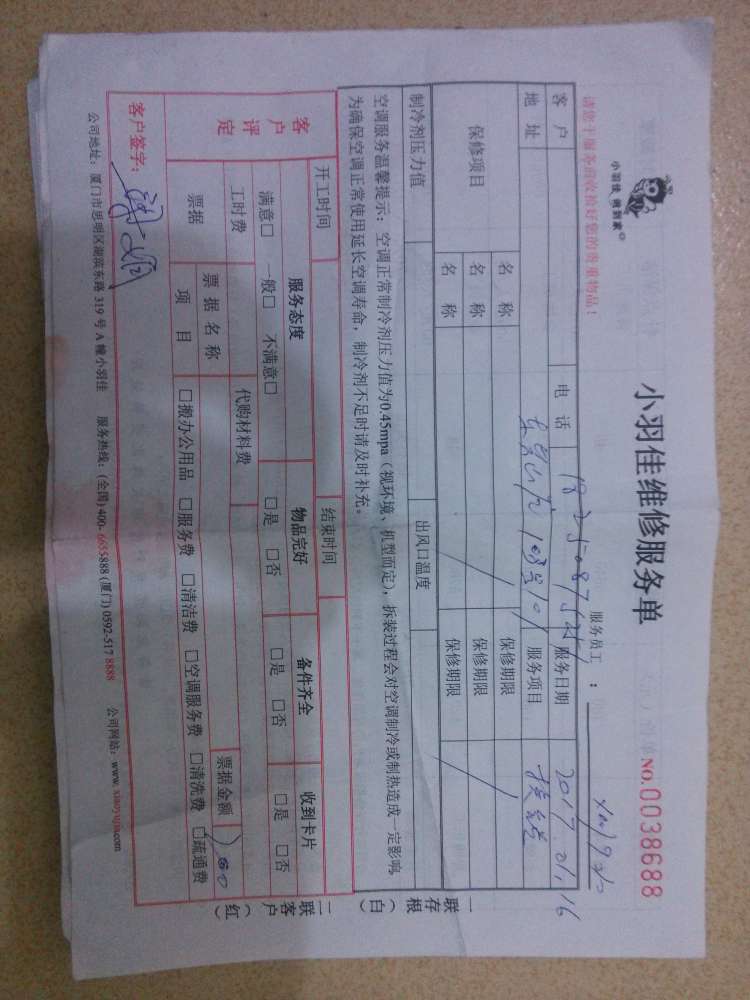 小羽
小羽佳 做到家
小羽佳维修服务单
NO.0038688
请您于服务前收拾好您的贵重物品!
服务员工:
客户 电话 服务日期 2017.01.16
地址 服务项目
保修项目 名称 保修期限
名称 保修期限
名称 保修期限
制冷剂压力值 出风口温度
空调服务温馨提示:空调正常制冷剂压力值为0.45mpa(视环境、机型而定),拆装过程会对空调制冷或制热造成一定影响,
为确保空调正常使用延长空调寿命,制冷剂不足时请及时补充。
开工时间 结束时间
客户评定 服务态度 物品完好 备件齐全 收到卡片
满意□ 一般□ 不满意□ □是 □否 □是 □否 □是 □否
工时费 代购材料费
票据 票据名称 票据金额
项目 □搬办公用品 □服务费 □清洁费 □空调服务费 □清洗费 □疏通费
客户签字:
公司地址:厦门市思明区湖滨东路 319 号 A 幢小羽佳 服务热线:(全国)400-6655888 (厦门) 0592-517 8888 公司网站:www.xiaoyujia.com
一联存根(白)
二联客户(红)